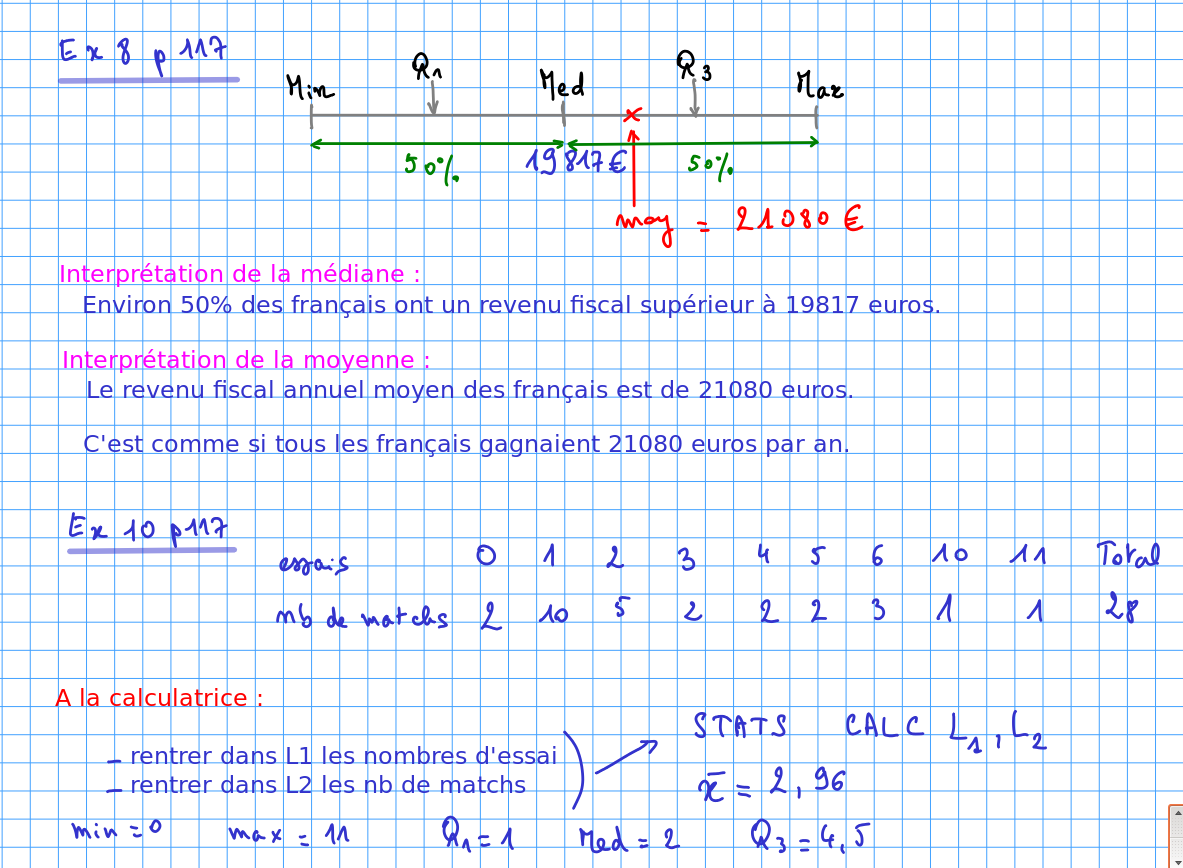 Ex 8 p 117
Min Q1 Med Q3 Max
50% 19 817 € 50%
moy = 21 080 €
Interprétation de la médiane :
Environ 50% des français ont un revenu fiscal supérieur à 19817 euros.
Interprétation de la moyenne :
Le revenu fiscal annuel moyen des français est de 21080 euros.
C'est comme si tous les français gagnaient 21080 euros par an.
Ex 10 p117
essais 0 1 2 3 4 5 6 10 11 Total
nb de matchs 2 10 5 2 2 2 3 1 1 28
A la calculatrice :
STATS CALC L1, L2
- rentrer dans L1 les nombres d'essai
- rentrer dans L2 les nb de matchs
x̄ = 2,96
min = 0 max = 11 Q1 = 1 Med = 2 Q3 = 4,5